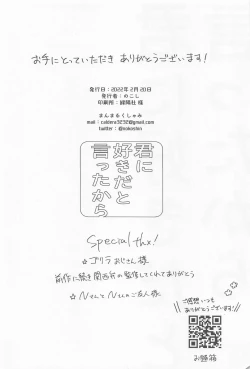 お手にとっていただき ありがとうございます!
発行日:2022年2月20日
発行者:のこし
印刷所:緑陽社 様
まんまるくしゃみ
mail:caldera3232@gmail.com
twitter:@nokoshin
君に
好きだと
言ったから
Special thx!
☆ゴリラおじさん様
前作に続き関西弁の監修してくれてありがとう
☆NくんとNくんのご友人様
ご感想いつも
ありがとうございます!
お題箱